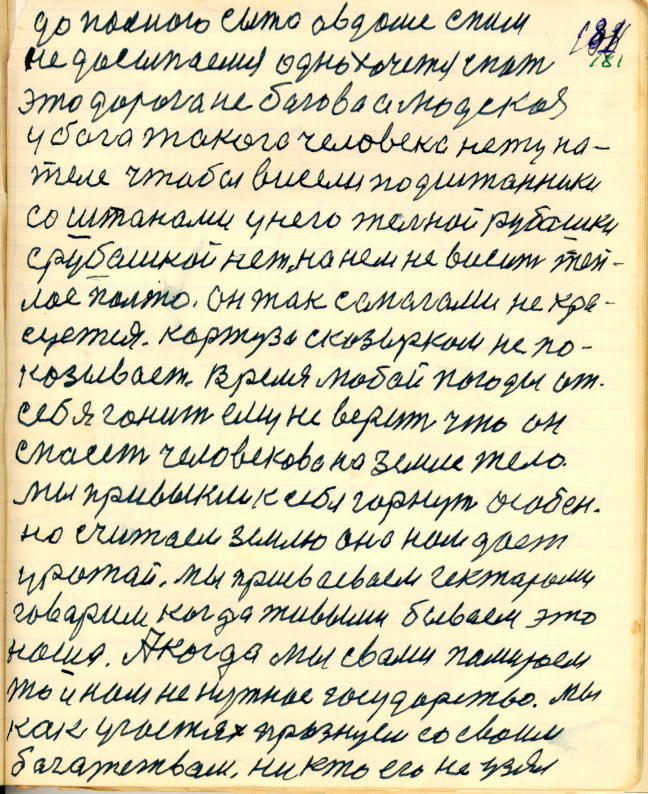 до полного сыта а вдоме спим 181
недосыпаемся однохочется спать 181
это дорога не багова а людская
у бога такого человека нету на-
теле чтобы висели подштанники
со штанами у него темной рубашки
с рубашкой нет, на нем не висит теп-
лое палто. он так сапагами не кра-
суется. картуза с козырком не по-
козывает. Время любой погоды от.
себя гонит ему не верят что он
спасет человекова на земле тело.
мы привыкли к себя горнут особен.
но считаем землю она нам дает
урожай. мы присваеваем гектарами
говарим когда живыми бываем это
наша. А когда мы свами памираем
то и нам не нужное государство. мы
как угостях празнуем со своим
багажеством. ни кто его не узял